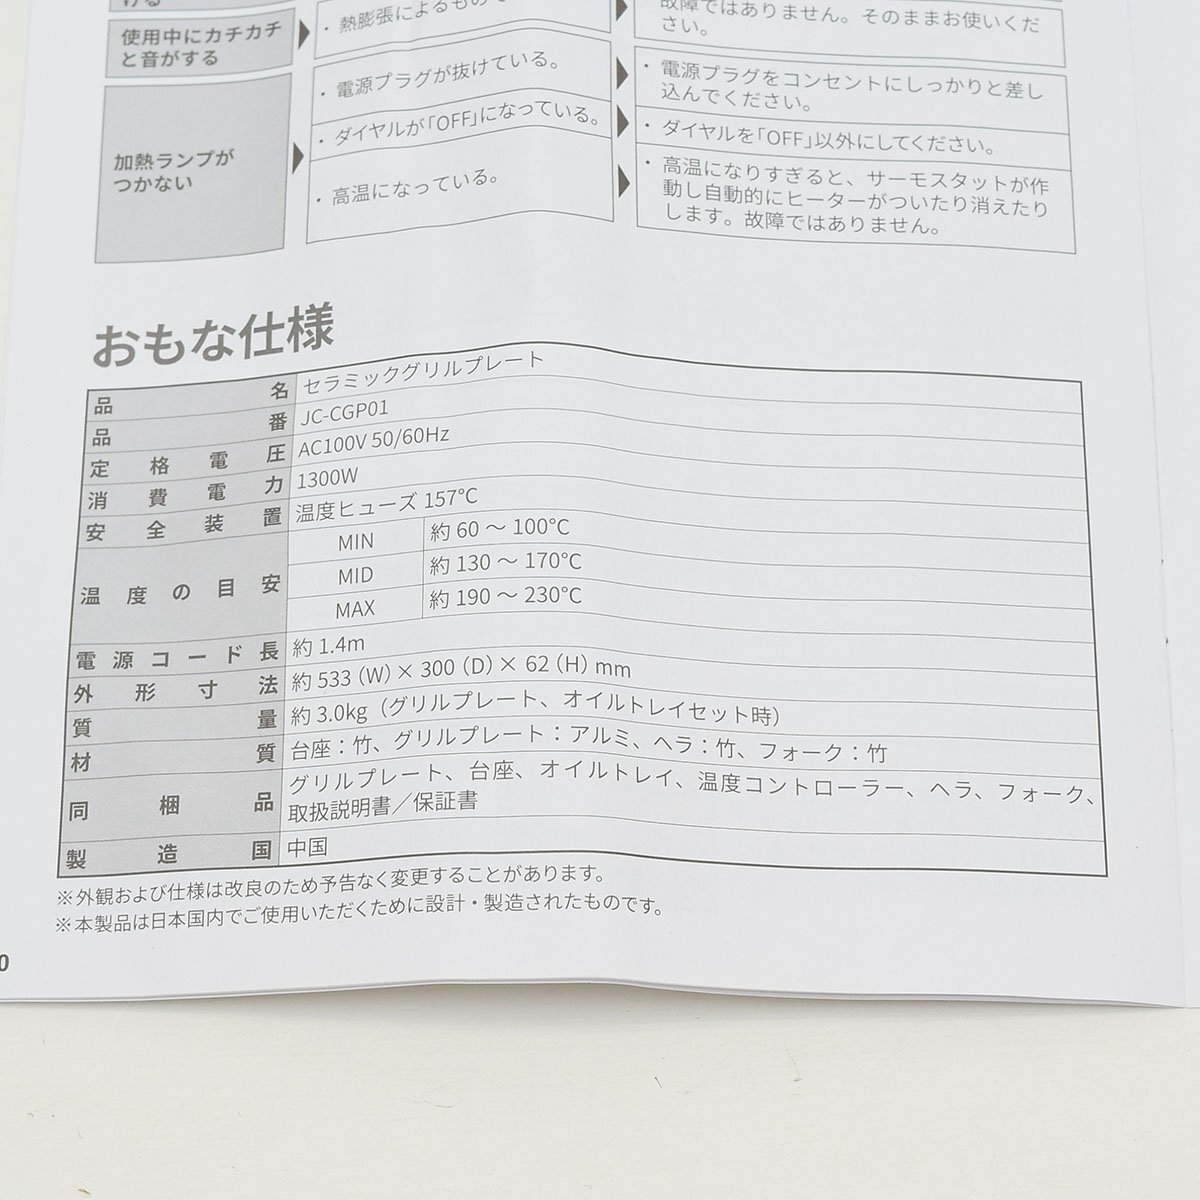 ける
使用中にカチカチ
と音がする
・熱膨張によるもので
故障ではありません。そのままお使いくだ
さい。
加熱ランプが
つかない
・電源プラグが抜けている。
・電源プラグをコンセントにしっかりと差し
込んでください。
・ダイヤルが「OFF」になっている。
・ダイヤルを「OFF」以外にしてください。
・高温になっている。
・高温になりすぎると、サーモスタットが作
動し自動的にヒーターがついたり消えたり
します。故障ではありません。
おもな仕様
品名 セラミックグリルプレート
品番 JC-CGP01
定格電圧 AC100V 50/60Hz
消費電力 1300W
安全装置 温度ヒューズ 157℃
温度の目安
MIN 約 60 〜 100℃
MID 約 130 〜 170℃
MAX 約 190 〜 230℃
電源コード長 約 1.4m
外形寸法 約 533（W）× 300（D）× 62（H）mm
質量 約 3.0kg（グリルプレート、オイルトレイセット時）
材質 台座：竹、グリルプレート：アルミ、ヘラ：竹、フォーク：竹
同梱品 グリルプレート、台座、オイルトレイ、温度コントローラー、ヘラ、フォーク、
取扱説明書／保証書
製造国 中国
※外観および仕様は改良のため予告なく変更することがあります。
※本製品は日本国内でご使用いただくために設計・製造されたものです。
0